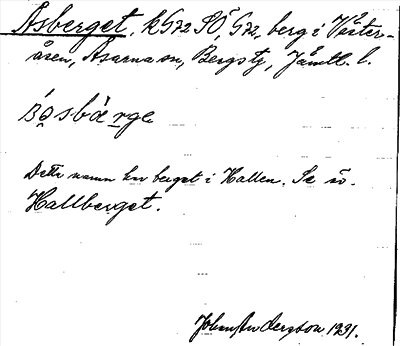 Åsberget, k G72 SÖ, G72, berg i Väster-
åsen, Åsarna sn, Bergs tg, Jämtl. l.
åsbærge
Detta namn har berget i Hallen. Se ö.
Hallberget.
Johan Andersson 1931.